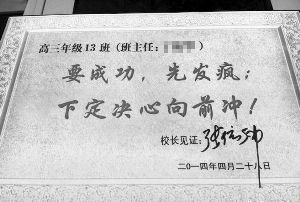 高三年级13班（班主任： ）
要成功，先发疯；
下定决心向前冲！
校长见证：
二〇一四年四月二十八日